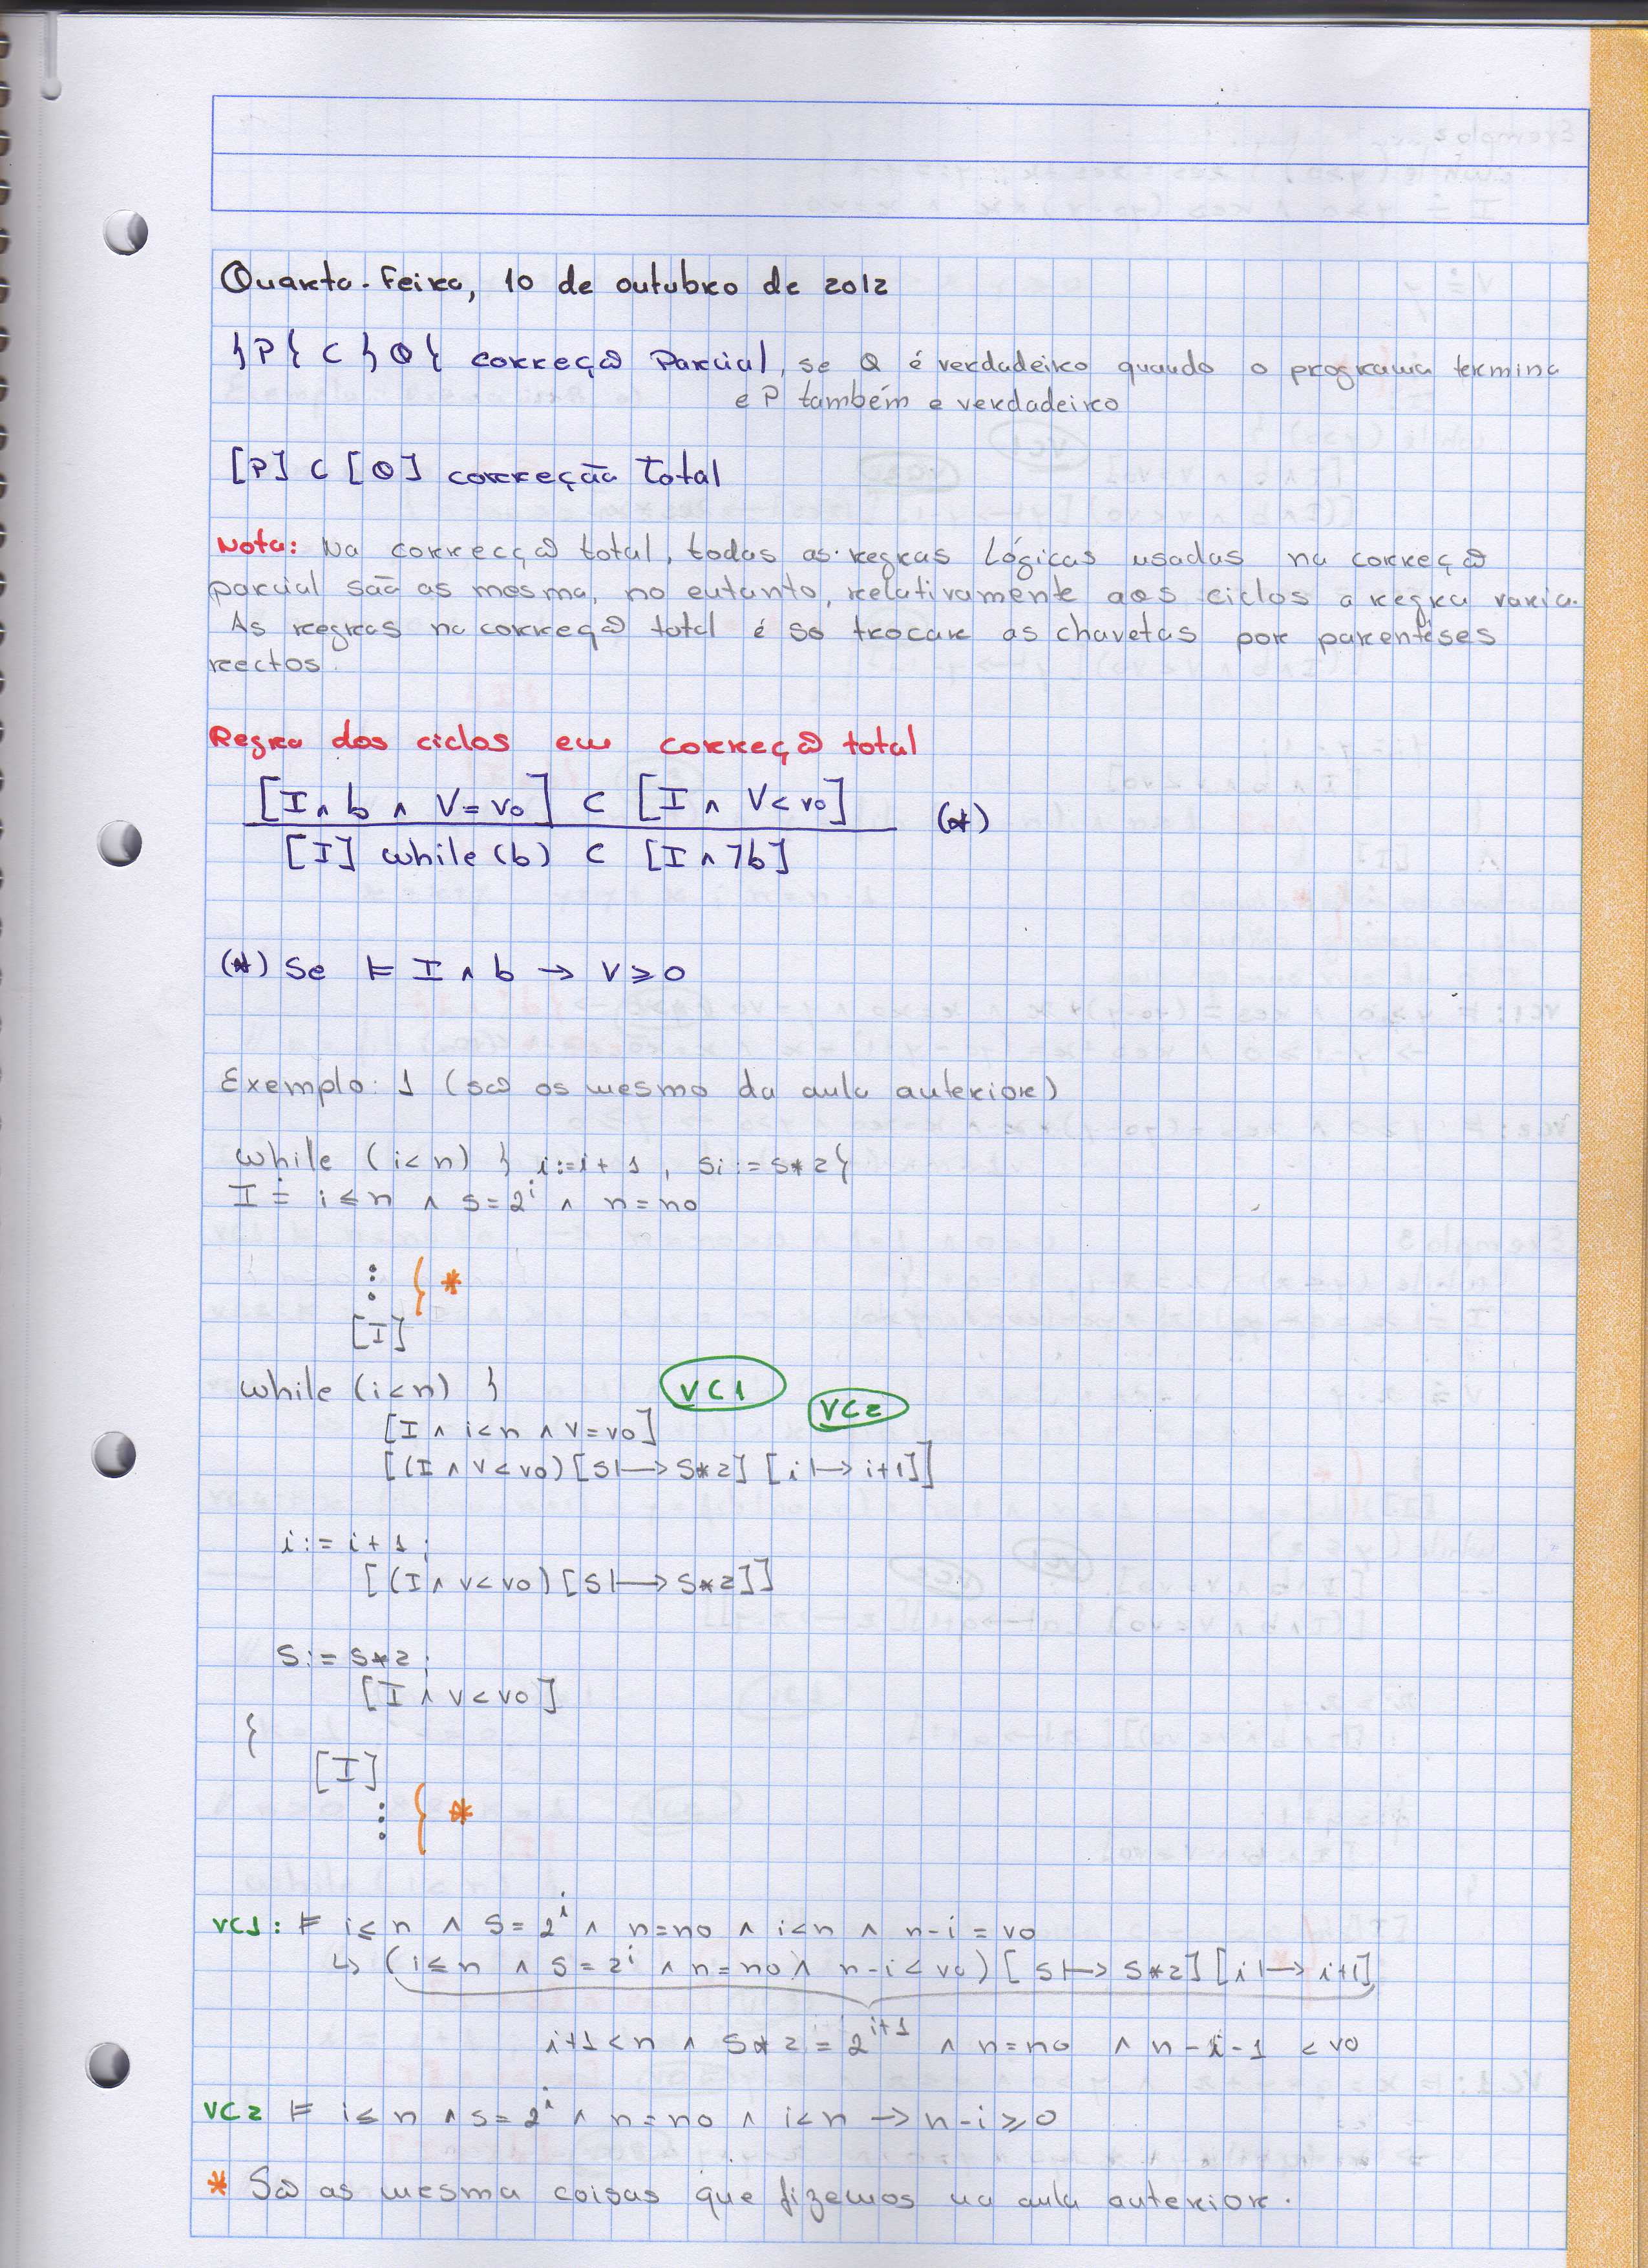 Quarta-Feira, 10 de outubro de 2012
}P{ C }Q{ correção Parcial, se Q é verdadeiro quando o programa termina
e P também e verdadeiro
[P] C [Q] correção Total
Nota: Na correcção total, todas as regras Lógicas usadas na correção
parcial são as mesma, no entanto, relativamente aos ciclos a regra varia.
As regras na correção total é so trocar as chavetas por parentêses
rectos.
Regra dos ciclos em correção total
[I ∧ b ∧ V = v0] C [I ∧ V < v0]
(*)
[I] while (b) C [I ∧ ¬b]
(*) Se ⊨ I ∧ b → V ≥ 0
Exemplo: 1 (são os mesmo da aula anterior)
while (i < n) } i := i + 1 , si := s * 2 {
I ≐ i ≤ n ∧ s = 2^i ∧ n = n0
⋮ } *
[I]
while (i < n) }
VC1
VC2
[I ∧ i < n ∧ V = v0]
[(I ∧ V < v0) [s ↦ s * 2] [i ↦ i+1]]
i := i + 1 ;
[(I ∧ V < v0) [s ↦ s * 2]]
s := s * 2 ;
[I ∧ V < v0]
{
[I]
⋮ { *
VC1: ⊨ i ≤ n ∧ s = 2^i ∧ n = n0 ∧ i < n ∧ n - i = v0
↳ (i ≤ n ∧ s = 2^i ∧ n = n0) ∧ n - i < v0) [s ↦ s * 2] [i ↦ i+1]
i+1 < n ∧ s * 2 = 2^{i+1} ∧ n = n0 ∧ n - i - 1 < v0
VC2 ⊨ i ≤ n ∧ s = 2^i ∧ n = n0 ∧ i < n → n - i ≥ 0
* São as mesma coisas que fizemos na aula anterior.